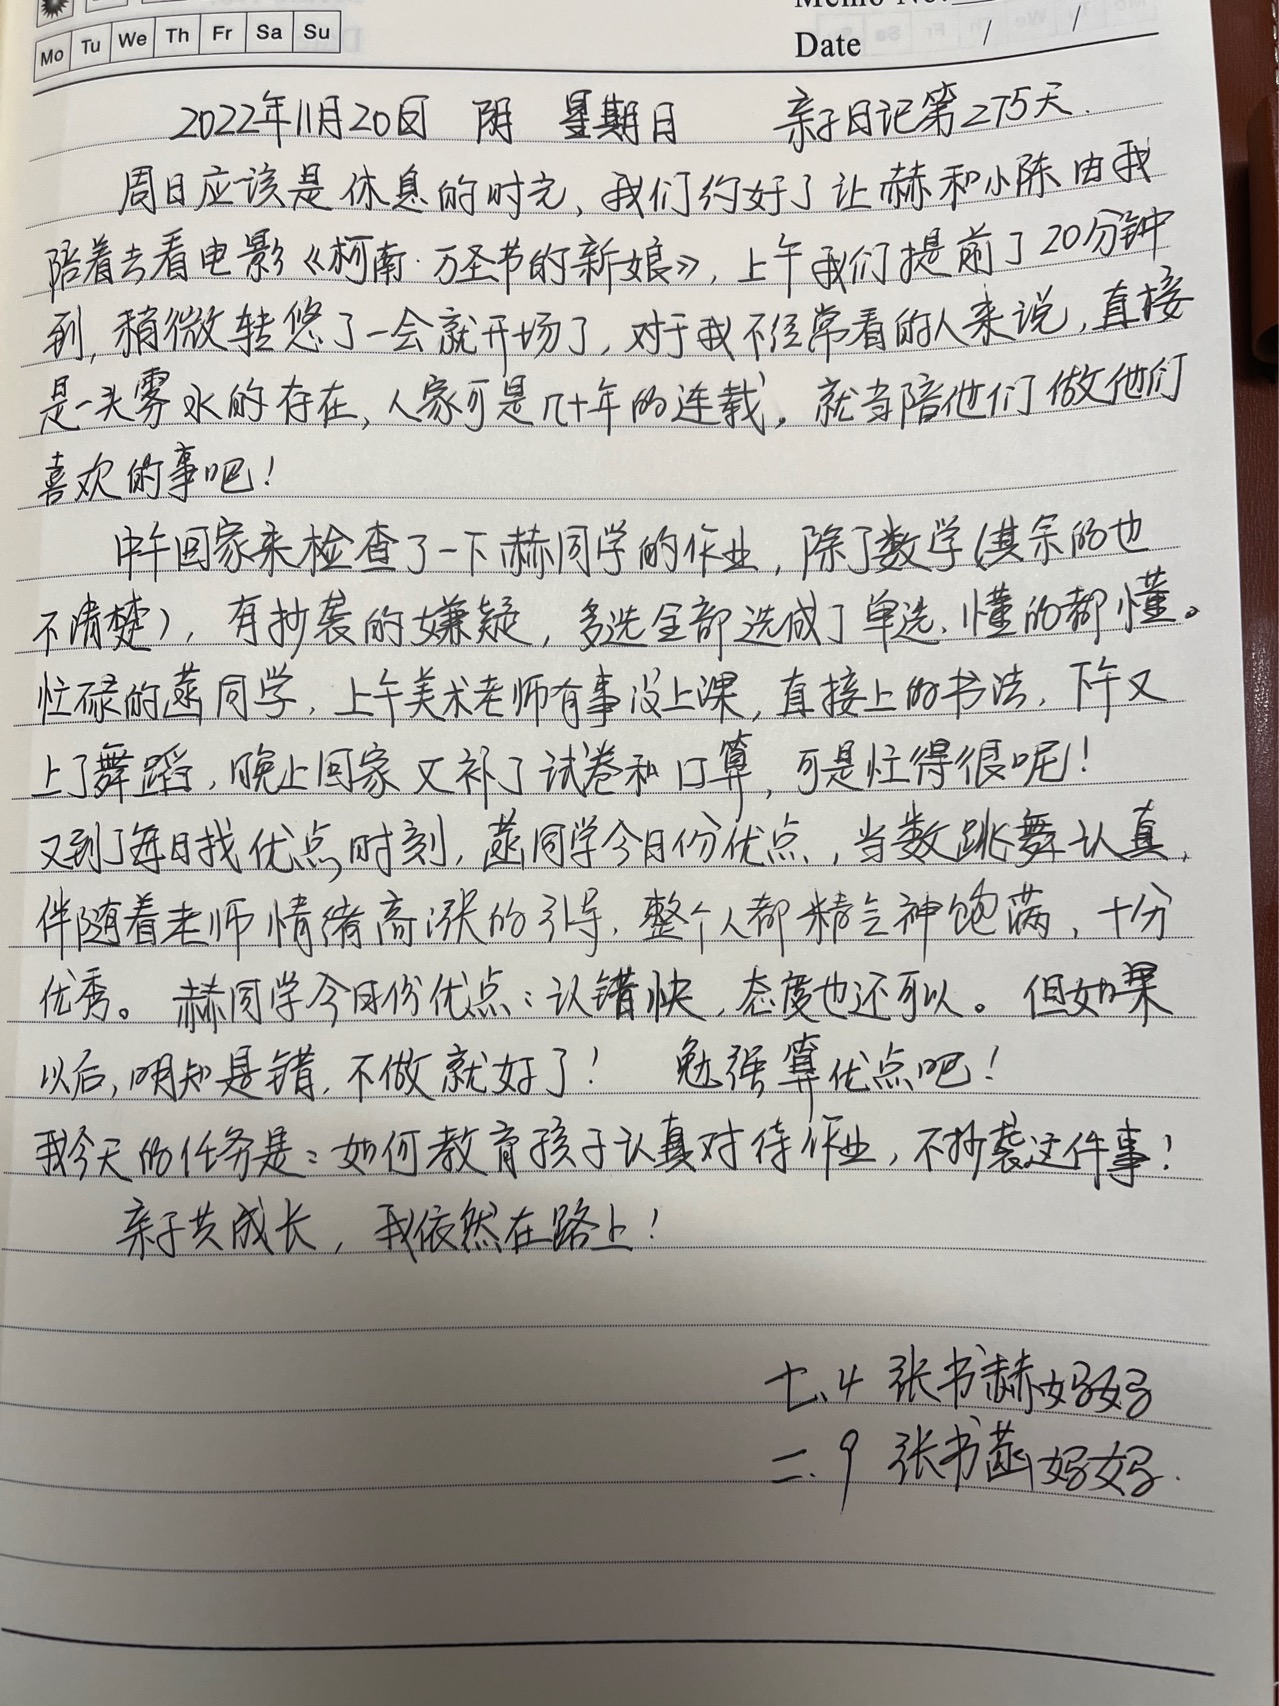 Mo Tu We Th Fr Sa Su
Memo No.
Date / /
2022年11月20日 阴 星期日 亲子日记第275天.
周日应该是休息的时光,我们约好了让赫和小陈由我
陪着去看电影《柯南·万圣节的新娘》,上午我们提前了20分钟
到,稍微转悠了一会就开场了,对于我不经常看的人来说,直接
是一头雾水的存在,人家可是几十年的连载。就当陪他们做他们
喜欢的事吧!
中午回家来检查了一下赫同学的作业,除了数学(其余的也
不清楚),有抄袭的嫌疑,多选全部选成了单选、懂的都懂。
忙碌的菡同学,上午美术老师有事没上课,直接上的书法,下午又
上了舞蹈,晚上回家又补了试卷和口算,可是忙得很呢!
又到了每日找优点时刻,菡同学今日份优点,当数跳舞认真,
伴随着老师情绪高涨的引导,整个人都精气神饱满,十分
优秀。赫同学今日份优点:认错快,态度也还可以。但如果
以后,明知是错,不做就好了! 勉强算优点吧!
我今天的任务是:如何教育孩子认真对待作业,不抄袭这件事!
亲子共成长,我依然在路上!
七.4 张书赫妈妈
二.9 张书菡妈妈.